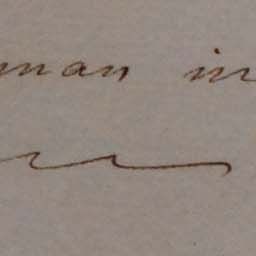 man in